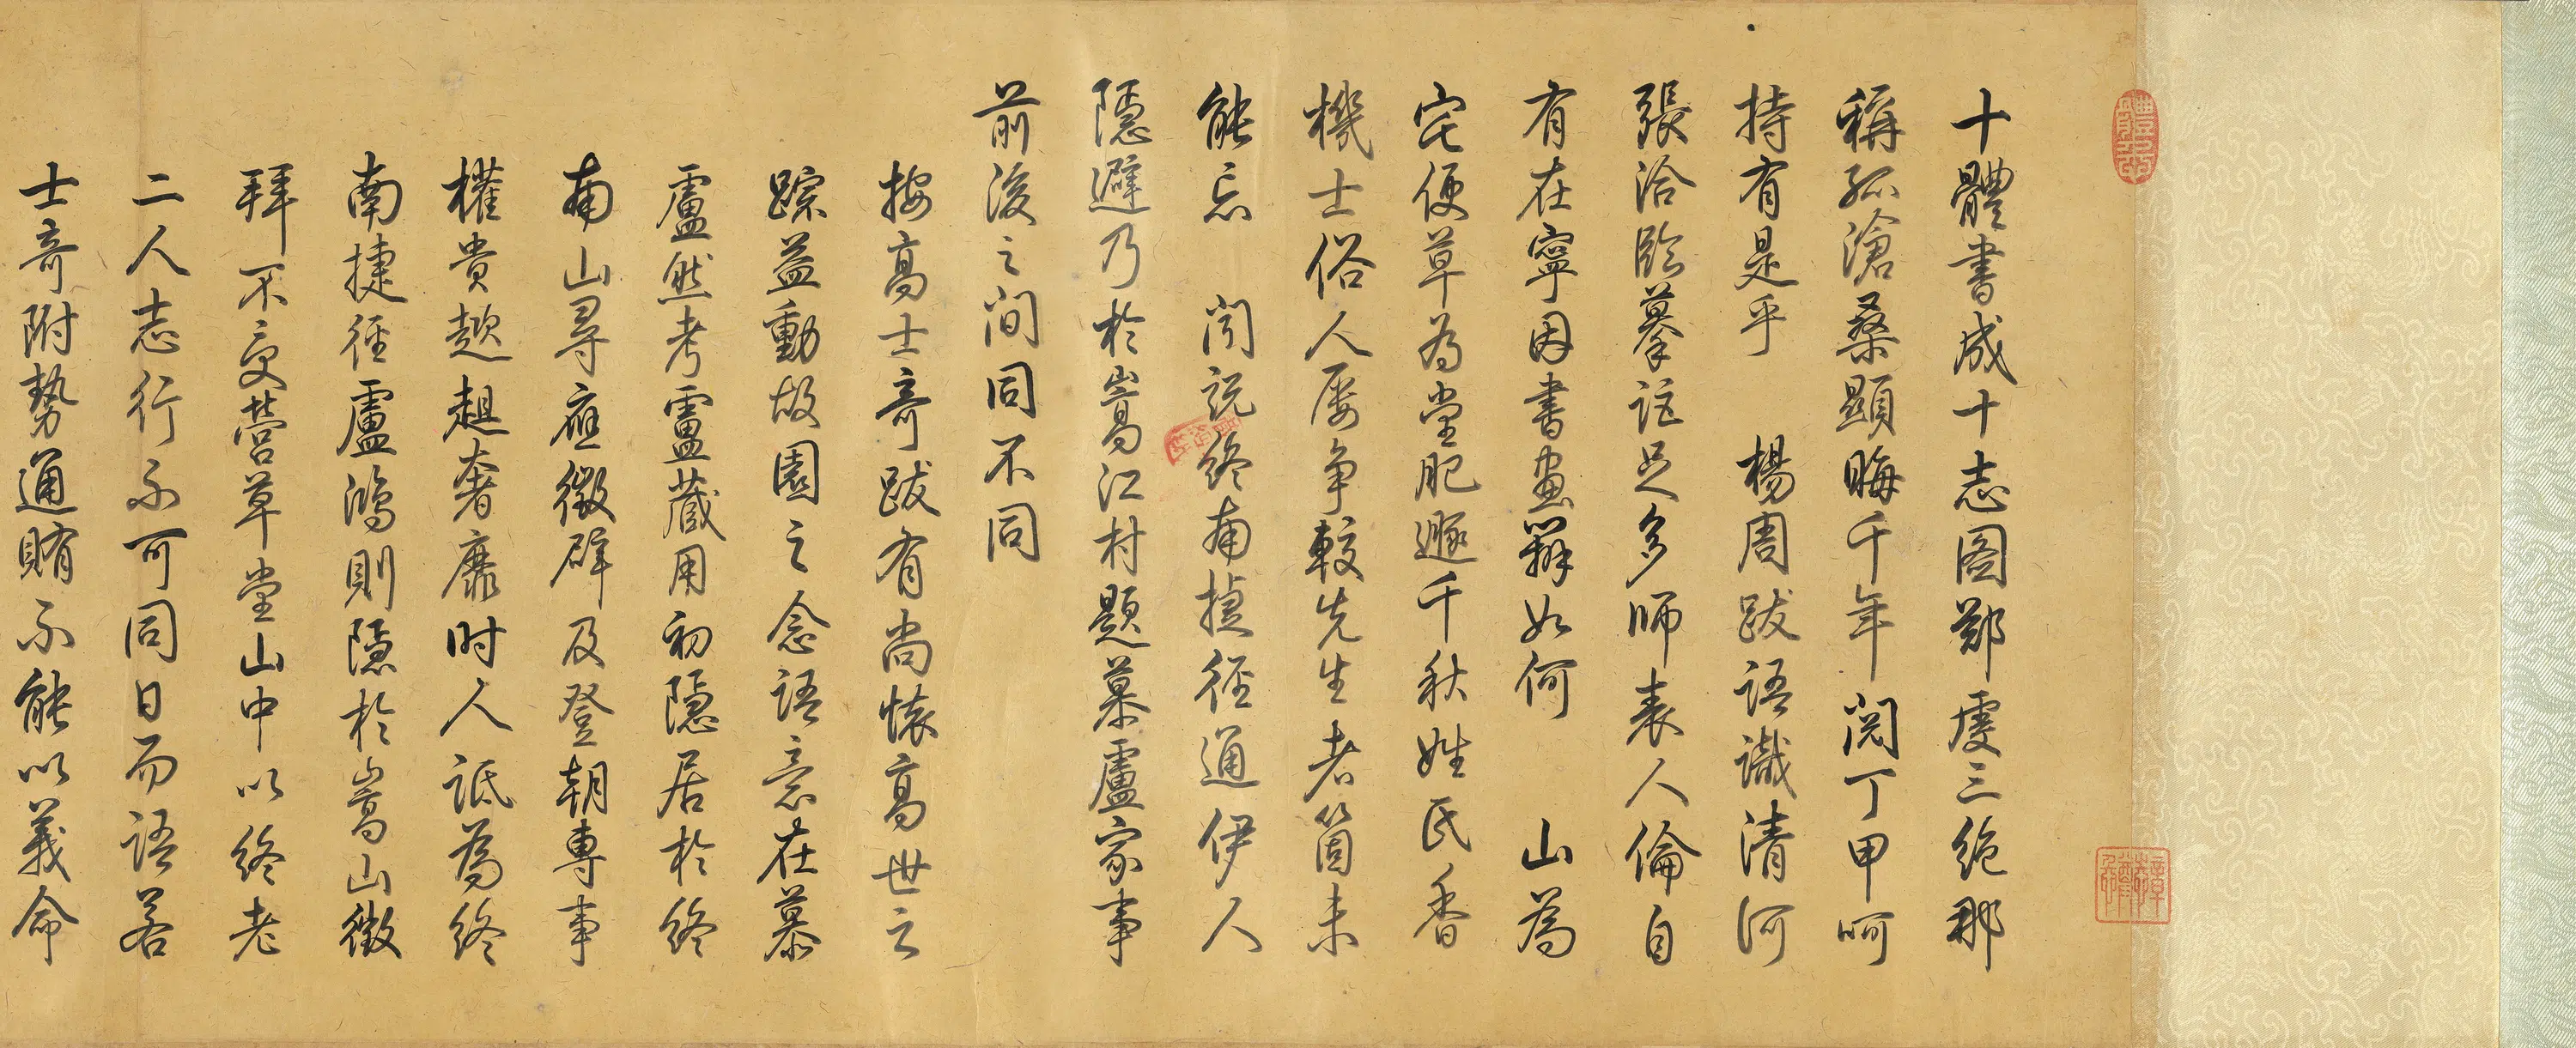 十體書成十志圖鄭虔三絕那
稱孤滄桑顯晦千年閱丁甲呵
持有是乎　楊周跋語識清河
張洽臨摹証足多師表人倫自
有在寧因書畫辯如何　山為
宅便草為堂肥遯千秋姓氏香
機士俗人屢爭較先生者箇未
能忘　閒說終南捷徑通伊人
隱避乃於嵩江村題慕盧家事
前後之間同不同
按高士奇跋有尚懷高世之
蹤益動故園之念語意在慕
盧然考盧藏用初隱居於終
南山尋應徵辟及登朝專事
權貴趑趄奢靡時人詆為終
南捷徑盧鴻則隱於嵩山徵
拜不受營草堂山中以終老
二人志行不可同日而語若
士奇附勢通賄不能以義命